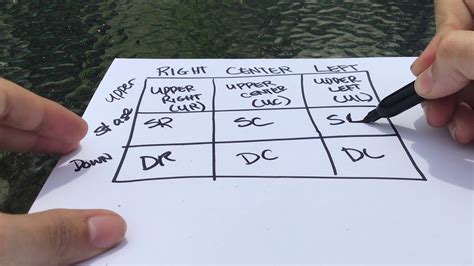 RIGHT CENTER LEFT
UPPER
UPPER
RIGHT
(UR)
UPPER
CENTER
(UC)
UPPER
LEFT
(UL)
STAGE
SR
SC
SL
DOWN
DR
DC
DL